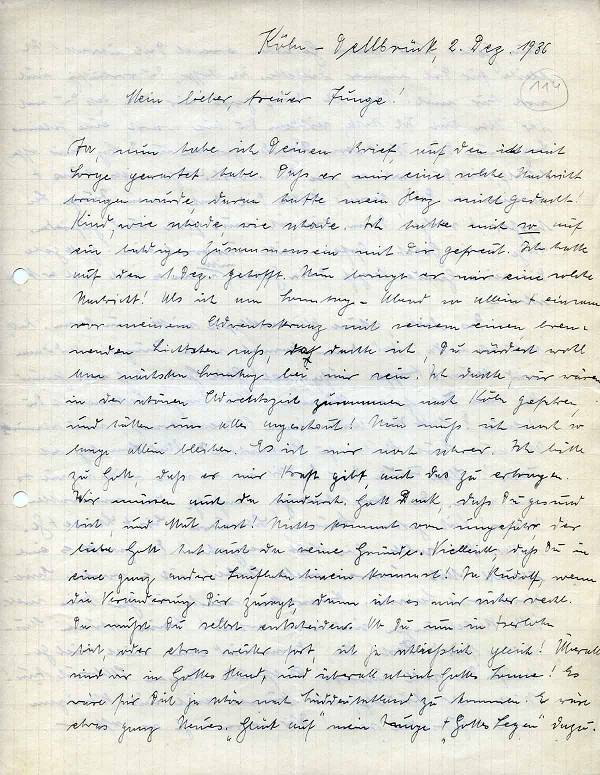 Köln-Dellbrück, 2. Dez. 1936
114
Mein lieber, treuer Junge!
Ja, nun habe ich Deinen Brief, auf den ich mit
Sorge gewartet habe. Dass er mir eine solche Nachricht
bringen würde, daran hatte mein Herz nicht gedacht!
Kind, wie schade, wie schade. Ich hatte mich so auf
ein baldiges Zusammensein mit Dir gefreut. Ich hatte
auf den 1. Dez. gehofft. Nun bringt er mir eine solche
Nachricht! Als ich am Sonntag-Abend so allein + einsam
vor meinem Adventskranz mit seinem einen bren-
nenden Lichtchen sass, dachte ich, Du würdest wohl
am nächsten Sonntag bei mir sein. Ich dachte, wir wären
in der schönen Adventszeit zusammen nach Köln gefahren,
und hätten uns alles angeschaut! Nun muß ich noch so
lange allein bleiben. Es ist mir noch schwer. Ich bitte
zu Gott, daß er mir Kraft gibt, auch das zu ertragen.
Wir müssen auch da hindurch. Gott Dank, daß Du gesund
bist und Mut hast! Nichts kommt von ungefähr, der
liebe Gott hat auch da seine Gründe. Vielleicht, daß Du in
eine ganz andere Laufbahn hinein kommst! Ja Rudolf, wenn
die Veränderung Dir zusagt, dann ist es mir sicher recht.
Da mußt Du selbst entscheiden. Ob Du nun in Iserlohn
bist, oder etwas weiter fort, ist ja schließlich gleich! Überall
sind wir in Gottes Hand, und überall scheint Gottes Sonne! Es
wäre für Dich ja schön nach Süddeutschland zu kommen. Es wäre
etwas ganz Neues. "Glück auf" mein Junge + "Gottes Segen" dazu.